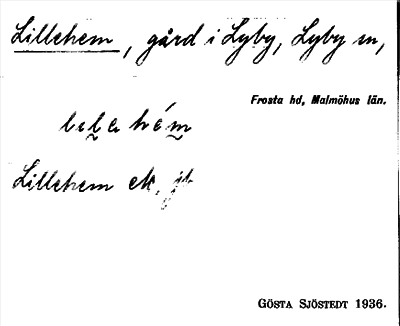 Lillehem, gård i Lyby, Lyby sn,
Frosta hd, Malmöhus län.
Lillehem ek. jb
GÖSTA SJÖSTEDT 1936.